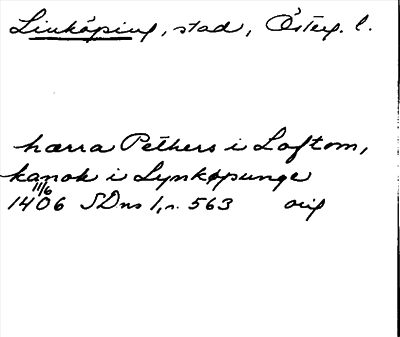 Linköping, stad, Österg. l.
hærra Pethers i Loftom,
kanok i Lynkøpunge
11/6
1406 SDns 1, s. 563 orig